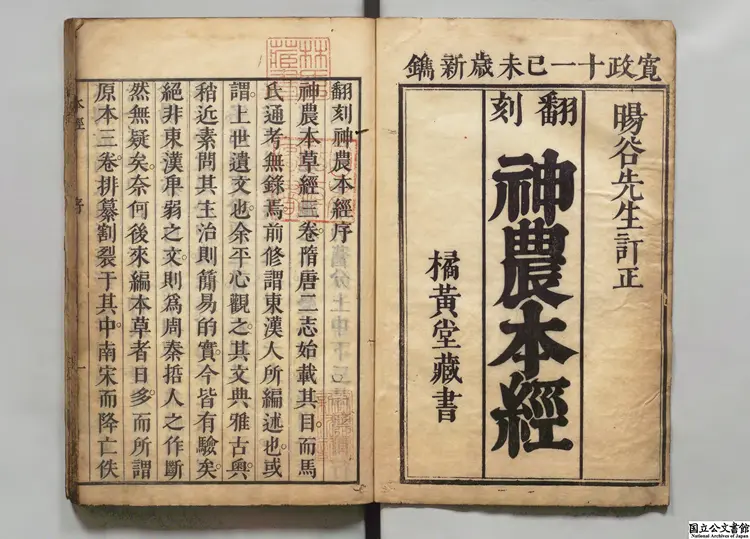 寬政十一己未歲新鐫
暘谷先生訂正
翻刻
神農本經
橘黃堂藏書
翻刻神農本經序
神農本草經三卷。隋唐二志始載其目。而馬
氏通考無錄焉。前修謂東漢人所編述也。或
謂。上世遺文也。余平心觀之。其文典雅古奧。
稍近素問。其主治則簡易的實。今皆有驗矣。
絕非東漢卑弱之文。則爲周秦哲人之作斷
然無疑矣。奈何後來編本草者日多。而所謂
原本三卷。排纂割裂于其中。南宋而降亡佚
本經 序
国立公文書館
National Archives of Japan